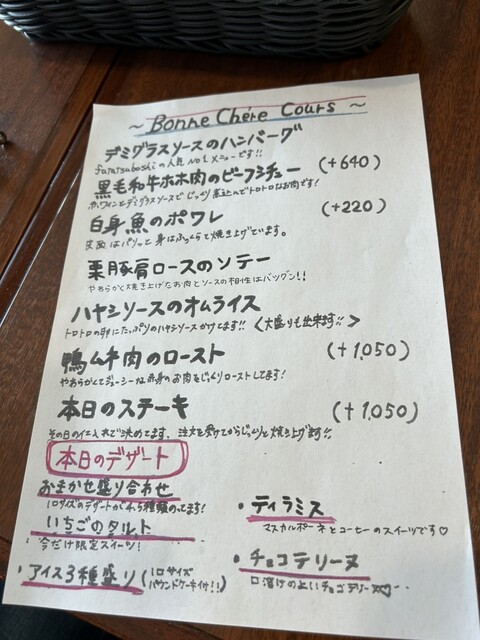 ~ Bonne Chére Cours ~
デミグラスソースのハンバーグ
futatsuboshiの人気No1メニューです!!
黒毛和牛ホホ肉のビーフシチュー (+640)
赤ワインとデミグラスソースでじっくり煮込んでトロトロなお肉です!
白身魚のポワレ (+220)
皮面はパリッと身はふっくらと焼き上げています。
栗豚肩ロースのソテー
やわらかく焼き上げたお肉とソースの相性はバツグン!!
ハヤシソースのオムライス
トロトロの卵にたっぷりのハヤシソースかけてます!! <大盛りも出来ます!!>
鴨ムネ肉のロースト (+1,050)
やわらかくてジューシーな赤身のお肉をじっくりローストしてます!
本日のステーキ (+1,050)
その日の仕入れで決めてます。注文を受けてからじっくりと焼き上げます!!
本日のデザート
おまかせ盛り合わせ
1口サイズのデザートが種類のってます!
いちごのタルト
今だけ限定スイーツ!
・アイス3種盛り(1口サイズパウンドケーキ付!!)
・ティラミス
マスカルポーネとコーヒーのスイーツです♡
・チョコテリーヌ
口溶けの良いチョコテリーヌ♡